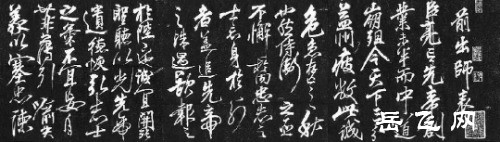 前出師表
臣亮言先帝創
業未半而中道
崩殂今天下三分
益州疲敝此誠
危急存亡之秋
也然侍衛之臣
不懈於內忠志之
士忘身於外
者蓋追先帝
之殊遇欲報之
於陛下也誠宜開張
聖聽以光先帝
遺德恢弘志士
之氣不宜妄自
菲薄引喻失
義以塞忠諫
岳飞网